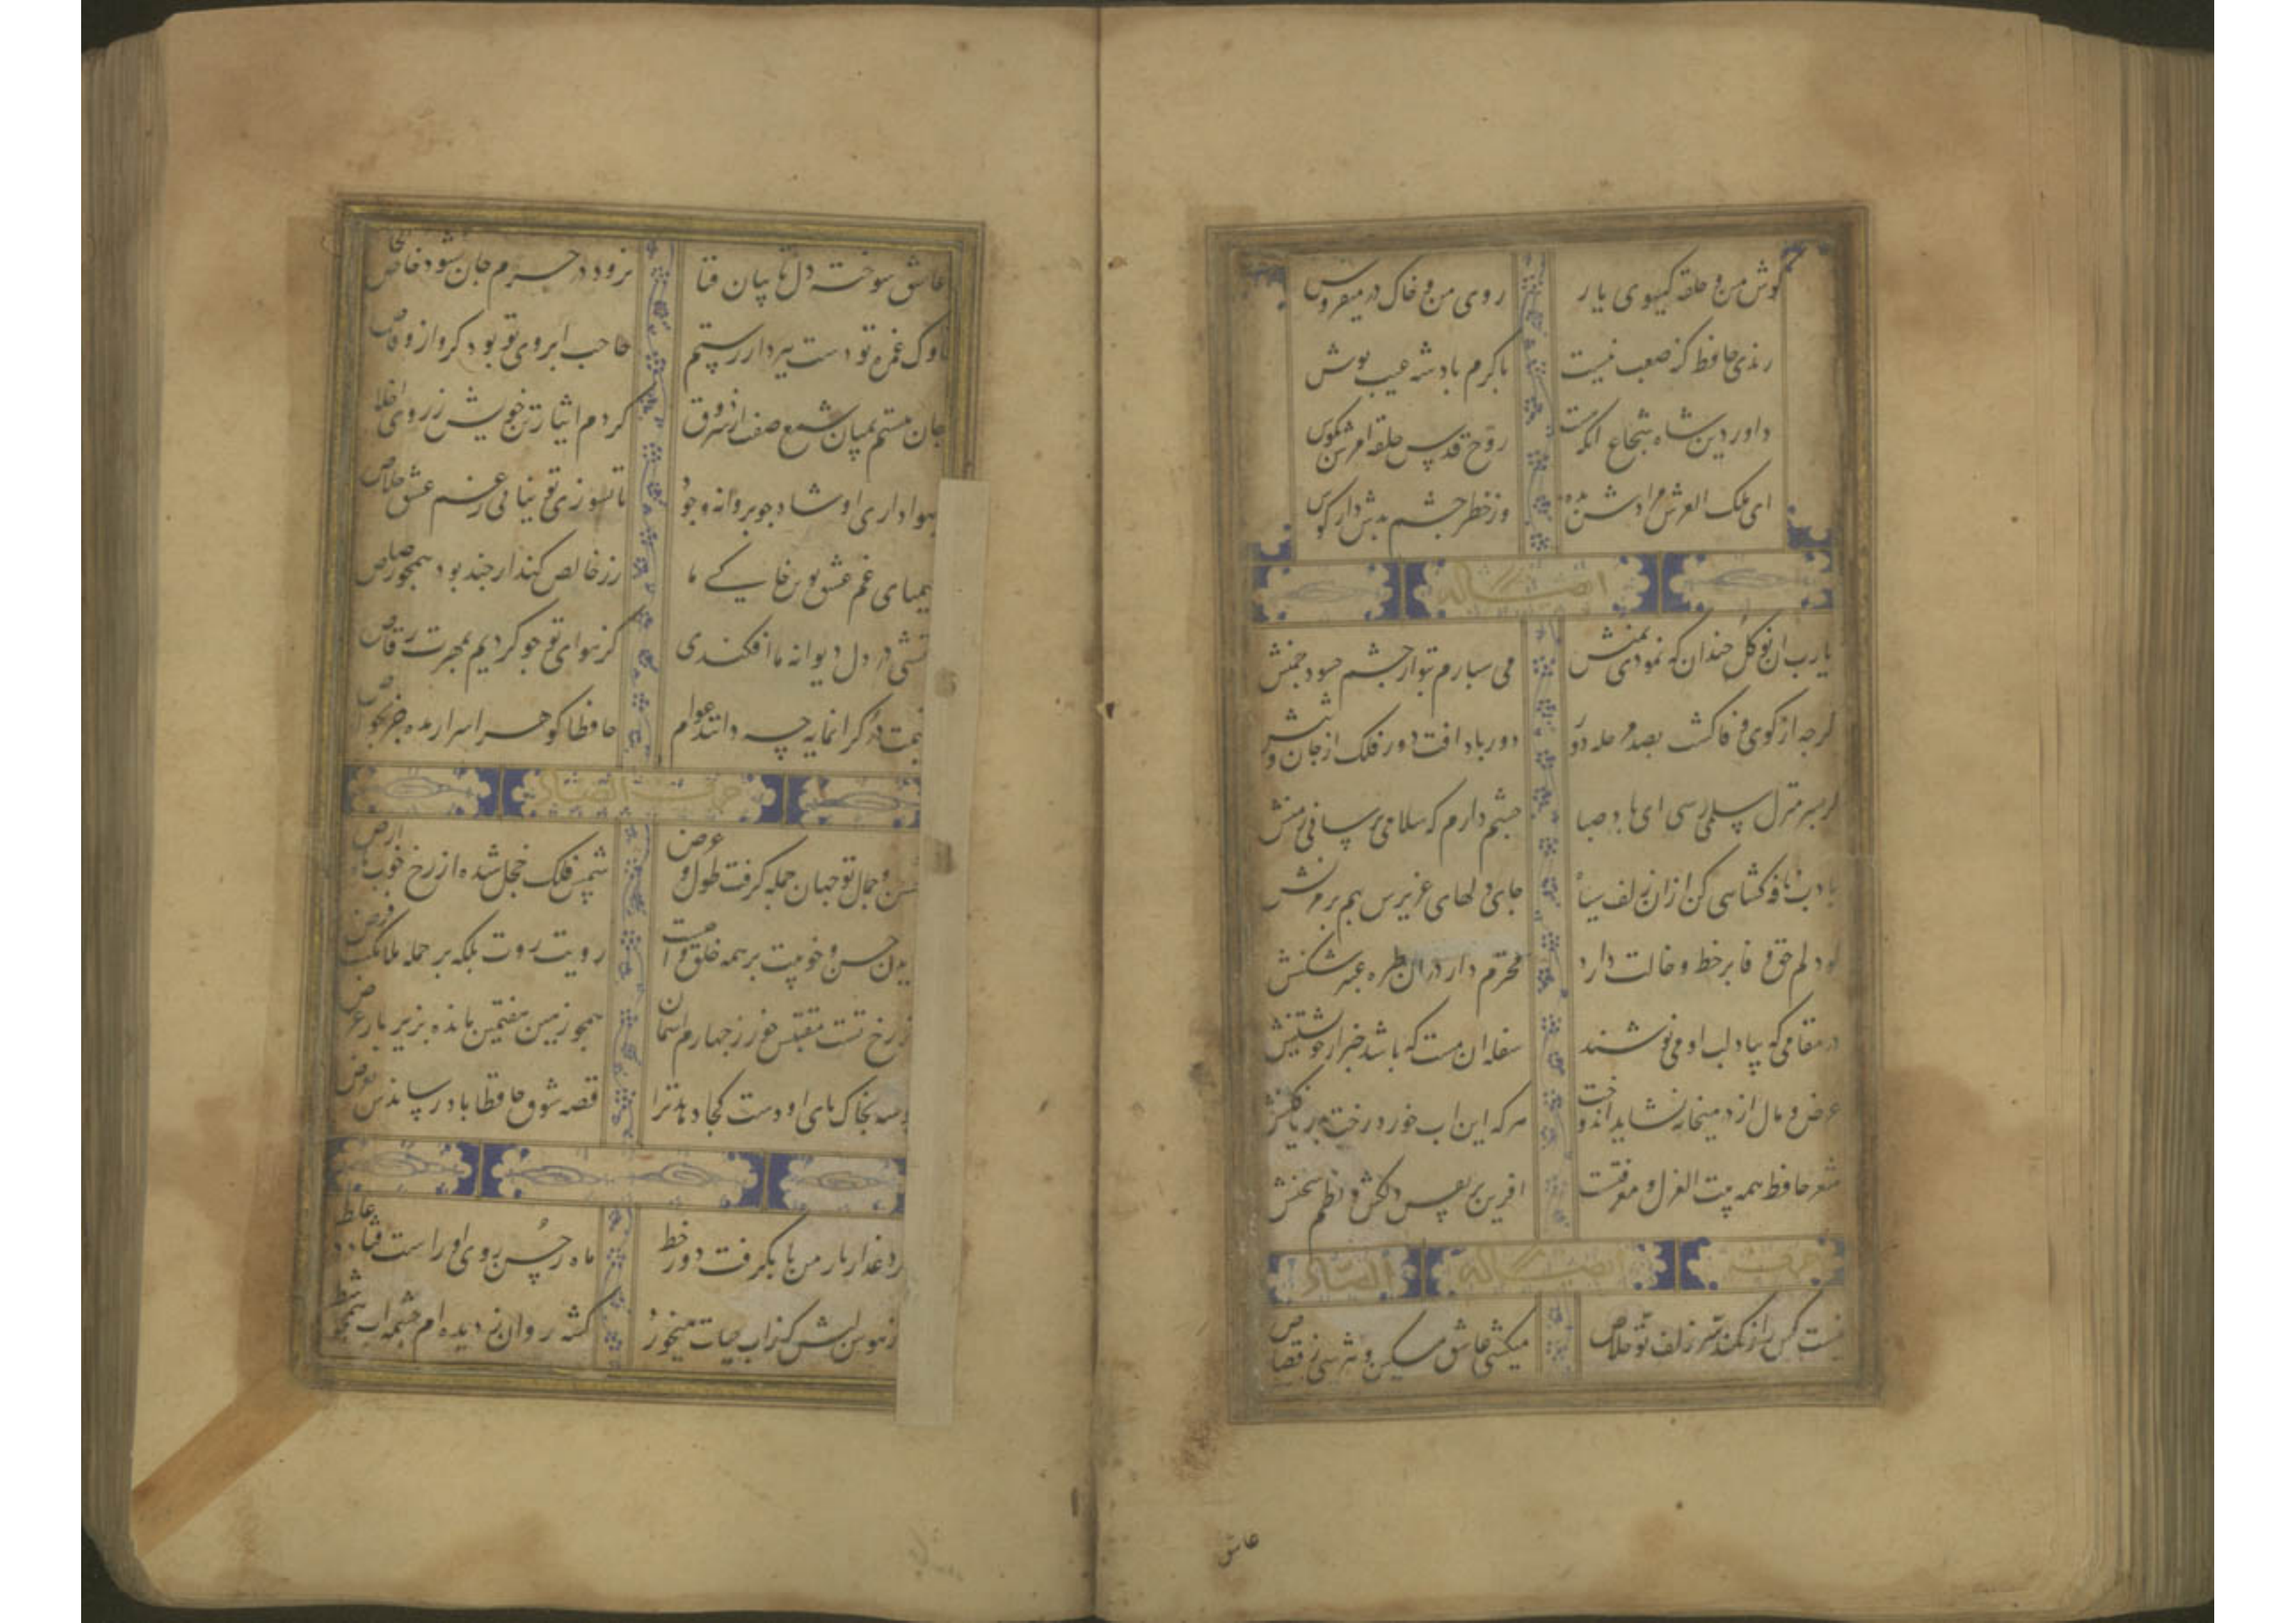 گوش من و حلقه کیسوی یار روی من و خاک در میفروش
رندی حافظ نه صعب نیست باکرم بادشه عیب بوش
داور دین شاه شجاع انکه روح قدس حلقه امرش بکوش
ای ملک العرش مرادش بده وز خطر چشم بدش دار کوش
وایضا له
یارب ان نوکل خندان که نمودی بمنش می سبارم بتو از چشم حسود چمنش
کرچه از کوی وفا کشت بصد مرحله دور دور باد افت دور فلک از جان و تنش
کر بسر منزل سلمی رسی ای باد صبا چشم دارم که سلامی برسانی ز منش
بادب نافه کشایی کن ازان زلف سیاه جای دلهای عزیرس بهم بر مزنش
کو دلم حق وفا بر خط و خالت دارد محترم دار در ان طره عنبر شکنش
در مقامی که بیاد لب او می نوشند سفله ان مست که باشد خبر از خویشتنش
عرض و مال از در میخانه نشاید اندوخت هرکه این اب خورد رخت بدریا فکنش
شعر حافظ همه بیت الغزل و معرفتست افرین بر نفس دلکش و نظم سخنش
حرف وایضا له الصاد
نیست کس را ز کمند سر زلف تو خلاص میکشی عاشق مسکین و نترسی ز قصاص
عاشق
عاشق سوخته دل تا بیابان فنا نرود در حرم جان نشود خاص الخاص
ناوک غمزه تو دست ببرد از رستم حاجب ابروی تو برد کرو از وقاص
جان نهستم بمیان شمع صفت از سر ذوق کردم ایثار تن خویش ز روی اخلاص
بهواداری او شاد چو بروانه وجود تا نسوزی تو نیابی ز غم عشق خلاص
کیمیای غم عشق تو تن خاکی ما زر خالص کند ار چند بود همچو رصاص
اتشی در دل دیوانه ما افکندی کر هوای تو چو کردیم بمهرت رقاص
قیمت در کرانمایه چه دانند عوام حافظا کوهر اسرار مده جز بخواص
حرف الضاد
حسن و جمال تو جهان جمله کرفت طول و عرض شمس فلک خجل شده از رخ خوب ماه ارض
دیدن حسن و خوبیت بر همه خلق واجبست رویت روت بلکه بر جمله ملایکست فرض
از رخ تست مقتبس خور ز چهارم اسمان همچو زمین هفتمین مانده بزیر بار قرض
بوسه بخاک بای او دست کجا دهد ترا قصه شوق حافظا باد رساندش بعرض
کرد عذار یار من تا بکرفت دور خط ماه ز حسن روی او راست فتاد در غلط
از هوس لبش که ز اب حیات میخورد کشته روان ز دیده ام چشمه اب همچو شط